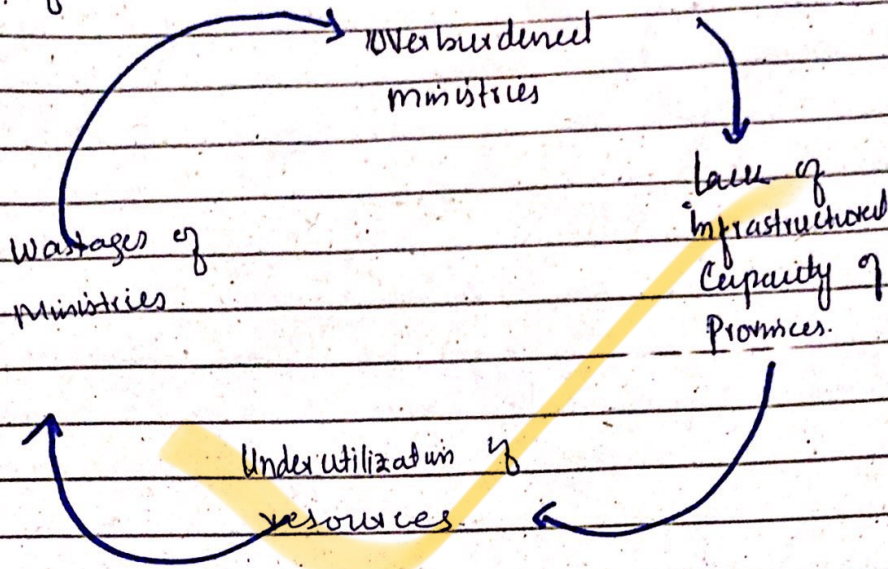 Overburdened
Ministries
Lack of
infrastructural
Capacity of
Provinces.
Underutilization of
resources.
Wastages of
Ministries.